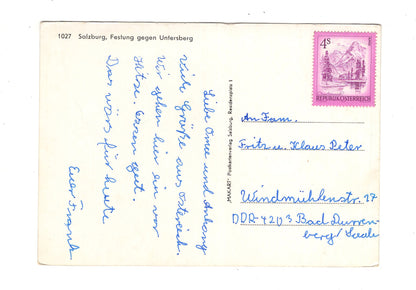 1027 Salzburg, Festung gegen Untersberg
Liebe Omee und Anhang
viele Grüße aus Österreich.
Wir gehen hier ein vor
Hitze. Essen gut.
Das wärs für heute
Euer Frank
"MAKART" Postkartenverlag Salzburg, Residenzplatz 1
4S
REPUBLIK ÖSTERREICH
An Fam.
Fritz u. Klaus Peter
Windmühlenstr. 27
DDR-4203 Bad Dürren-
berg/Saale